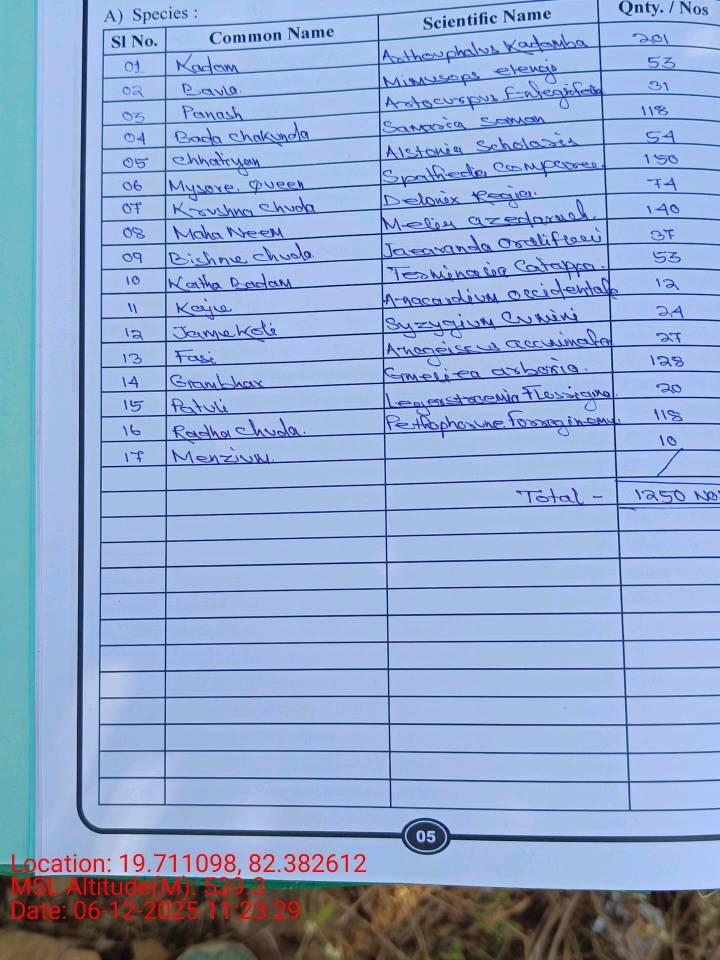 A) Species :
Sl No. Common Name Scientific Name Qnty. / Nos
01 Kadam Anthouphalus Kadamba 201
02 Bavla. Mimusops elengi 53
03 Panash Artocurpus Entegrifolia 31
04 Bada chakunda Samania Saman 118
05 chhatiyan Alstonia Scholaris 54
06 Mysore, Queen Spathiedia Companee 150
07 Krushna Chuda Delonix Regia. 74
08 Maha Neem Meliu azedarach. 140
09 Bichnu chuda. Jacaranda Ovalifleei 37
10 Katha Badam Terminalia Catappa. 53
11 Kaju Anacardium occidentale 12
12 Jamukoli Syzygium Cumini 24
13 Fasi Anogeissus accuminata 27
14 Gambhar Gmeliea arboria. 128
15 Patuli Legerstroemia Flossigna. 20
16 Radha Chuda. Pethophorune Forroginomu. 118
17 Menzium. 10
Total - 1250 No
05
Location: 19.711098, 82.382612
MSL Altitude(M): 539.3
Date: 06-12-2025 11:23:29